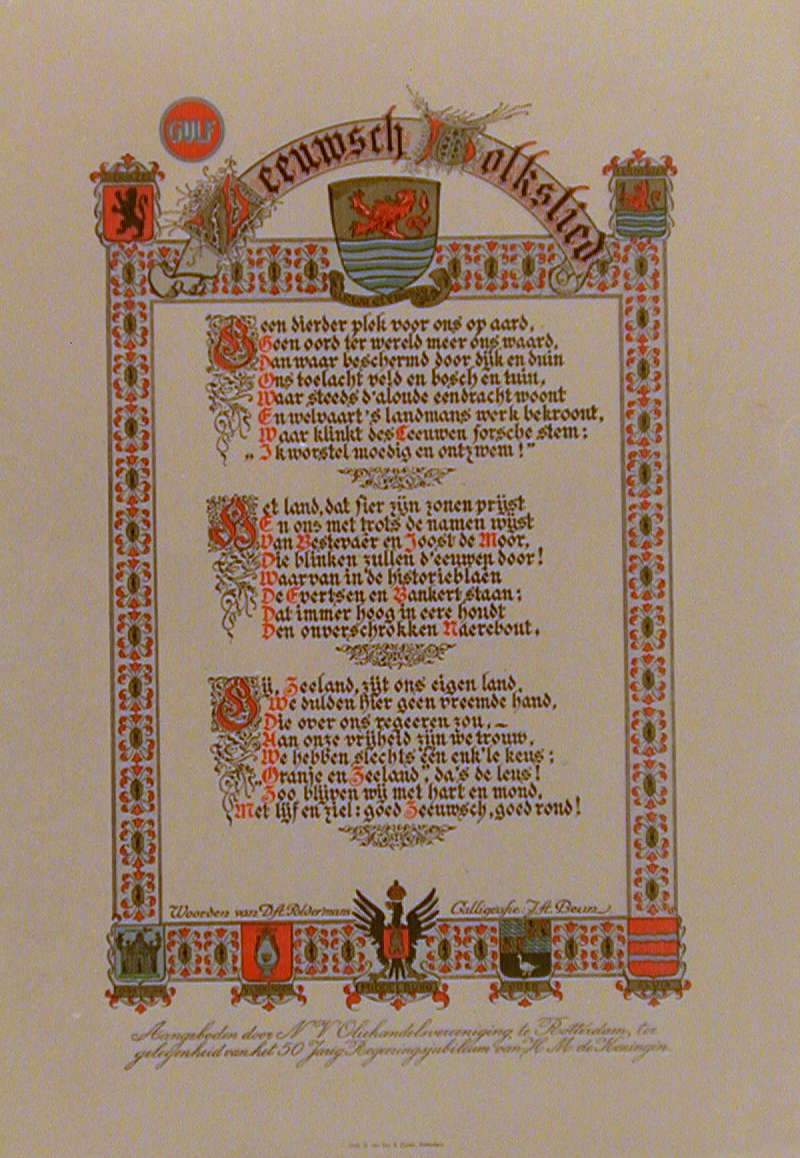 GULF
Zeeuwsch Volkslied
Geen dierder plek voor ons op aard,
Geen oord ter wereld meer ons waard,
Dan waar beschermd door dijk en duin
Ons toelacht veld en bosch en tuin,
Waar steeds d'aloude eendracht woont
En welvaart 's landmans werk bekroont,
Waar klinkt des Leeuwen forsche stem:
„Ik worstel moedig en ontzwem!"
Het land, dat fier zijn zonen prijst
En ons met trots de namen wijst
Van Bestevaêr en Joost de Moor,
Die blinken zullen d'eeuwen door!
Waarvan in de historieblaên
De Evertsen en Bankert staan;
Dat immer hoog in eere houdt
Den onverschrokken Naerebout.
Gij, Zeeland, zijt ons eigen land,
We dulden hier geen vreemde hand,
Die over ons regeeren zou, –
Aan onze vrijheid zijn we trouw.
We hebben slechts één enk'le keus:
„Oranje en Zeeland", da's de leus!
Zoo blijven wij met hart en mond,
Met lijf en ziel: goed Zeeuwsch, goed rond!
Woorden van D.A. Poldermans Calligrafie: J.A. Beun
MIDDELBURG GOES
Aangeboden door N V Oliehandelsvereeniging, te Rotterdam, ter
gelegenheid van het 50 Jarig Regeeringsjubileum van H. M. de Koningin.